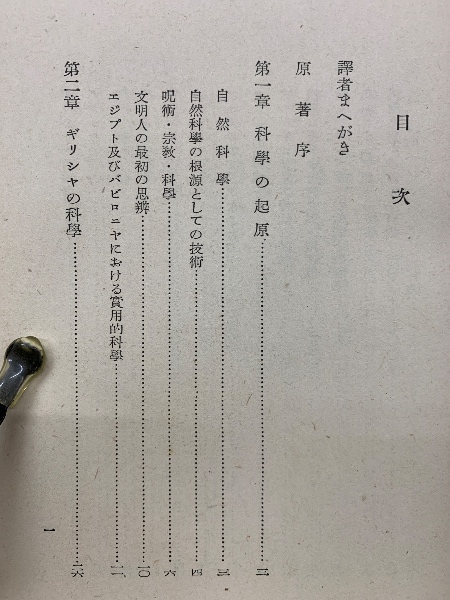 目次
譯者まへがき
原著序
第一章 科學の起原……三
自然科學……三
自然科學の根源としての技術……四
呪術・宗敎・科學……六
文明人の最初の思辨……一〇
エジプト及びバビロニヤにおける實用的科學……一一
第二章 ギリシャの科學……一六
一